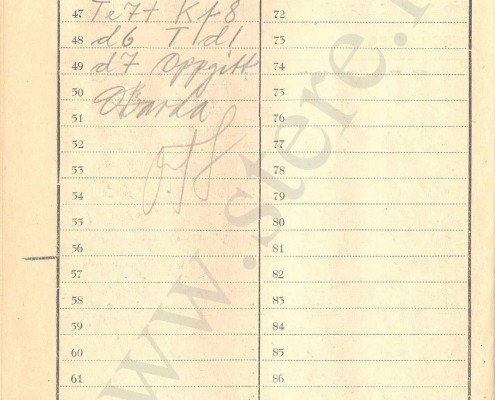 47 Te7+ Kf8 72
48 d6 Td1 73
49 d7 Oppgitt 74
50 75
51 76
52 77
53 78
54 79
55 80
56 81
57 82
58 83
59 84
60 85
61 86
www.stere